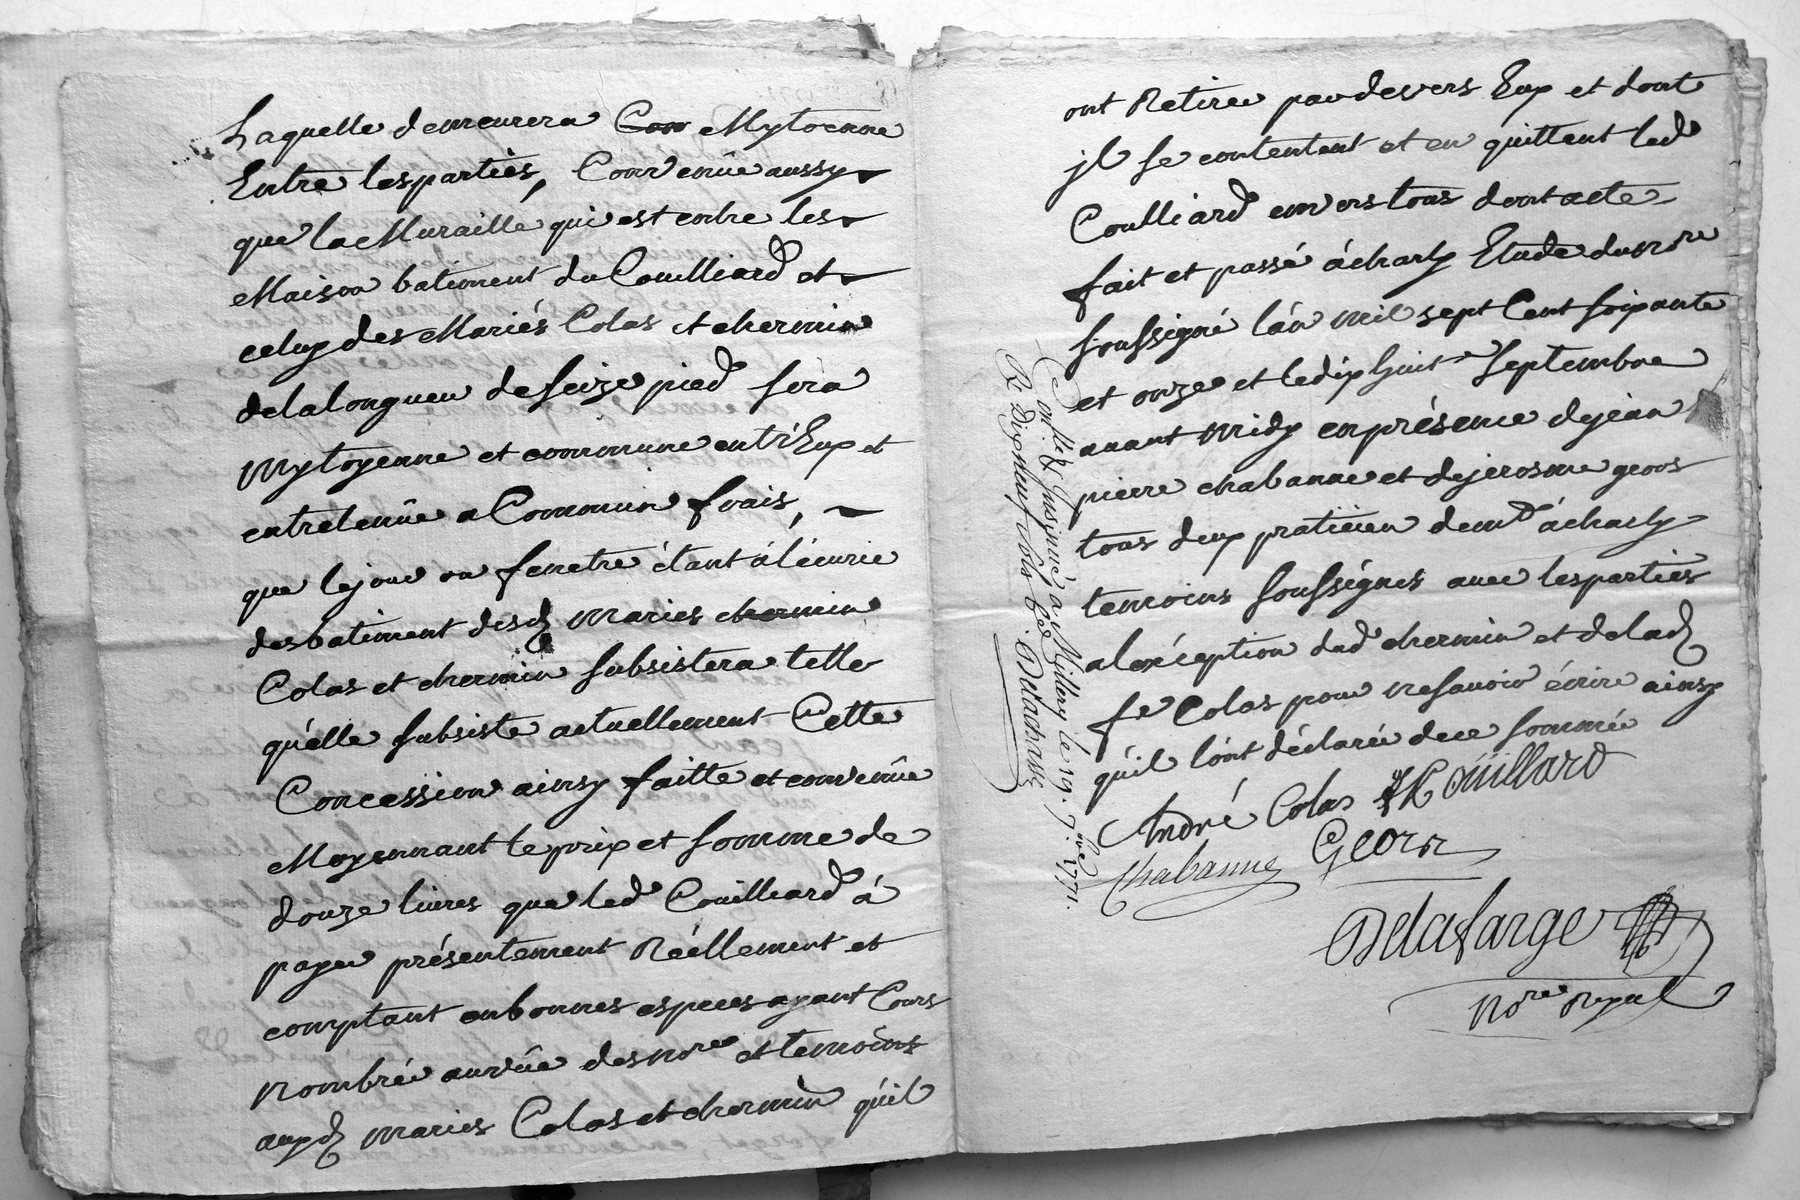 Laquelle demeurera Com Mytoenne
Entre lesparties, Convenüe aussy
que la Muraille qui est entre les
Maison batiment du Couilliard et
celuy des Mariés Colas et chermin
de la longueur de seize pied sera
Mytoyenne et commune entr'Eux et
entretenüe a Commun frais,
que le jour ou fenetre étant à l'écurie
des batiment desd maries chermin
Colas et chermin subsistera telle
qu'elle subsiste actuellement Cette
Concession ainsy faitte et convenüe
Moyennant le prix et somme de
douze livres que led Couilliard à
payer présentement Réellement et
comptant en bonnes especes ayant Cours
Nombrée au vüe des Nore et temoins
auxd maries Colas et chermin qu'il
ont Retirer par devers Eux et dont
jl se contentent et en quittent led
Coulliard envers tous dont acte
fait et passé à charly Etude du Nore
soussigné l'an mil sept Cent soixante
et onze et le dix huit Septembre
avant midy en présence de jean
pierre chabanne et de jerosme geors
tous deux praticien demt à charly
temoins soussignés avec les parties
al'exception dud chermin et de lad
fe Colas pour ne savoir écrire ainsy
qu'il l'ont déclarée de ce sommée
André Colas JK Oüillard
Chabanne Georr
Delafarge
Nore Royal
Conlle & Insinué a Millery le 19. 7bre 1771.
R. Dix neuf sols 6d. Delachasse